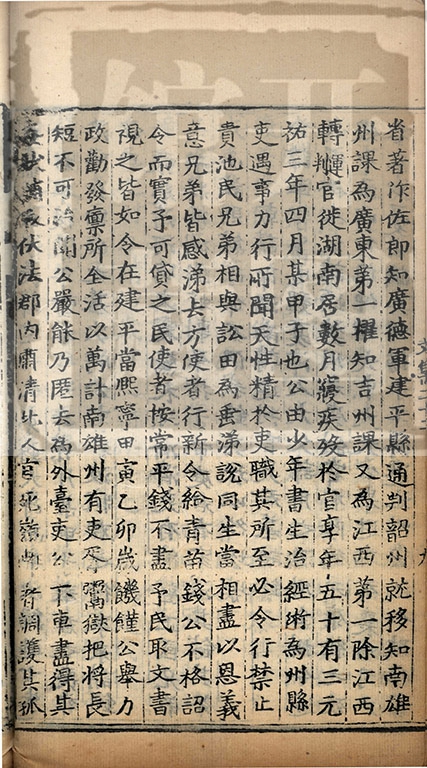 省著作佐郎知廣德軍建平縣通判韶州就移知南雄
州課為廣東第一擢知吉州課又為江西第一除江西
轉官徙湖南居數月寢疾歿於官享年五十有三元
祐三年四月某甲子也公由少年書生治經術為州縣
吏遇事力行所聞天性精於吏職其所至必令行禁止
貴池民兄弟相與訟田為垂涕說同生當相盡以恩義
意兄弟皆感涕去方使者行新令給青苗錢公不格詔
令而實予可貸之民使者按常平錢不盡予民取文書
視之皆如令在建平當熙寧甲寅乙卯歲饑饉公舉力
政勸發廩所全活以萬計南雄州有吏胥鬻獄把將長
短不可治聞公嚴能乃匿去為外臺吏公下車盡得其
伏法郡内肅清北人官死嶺南者調護其孤